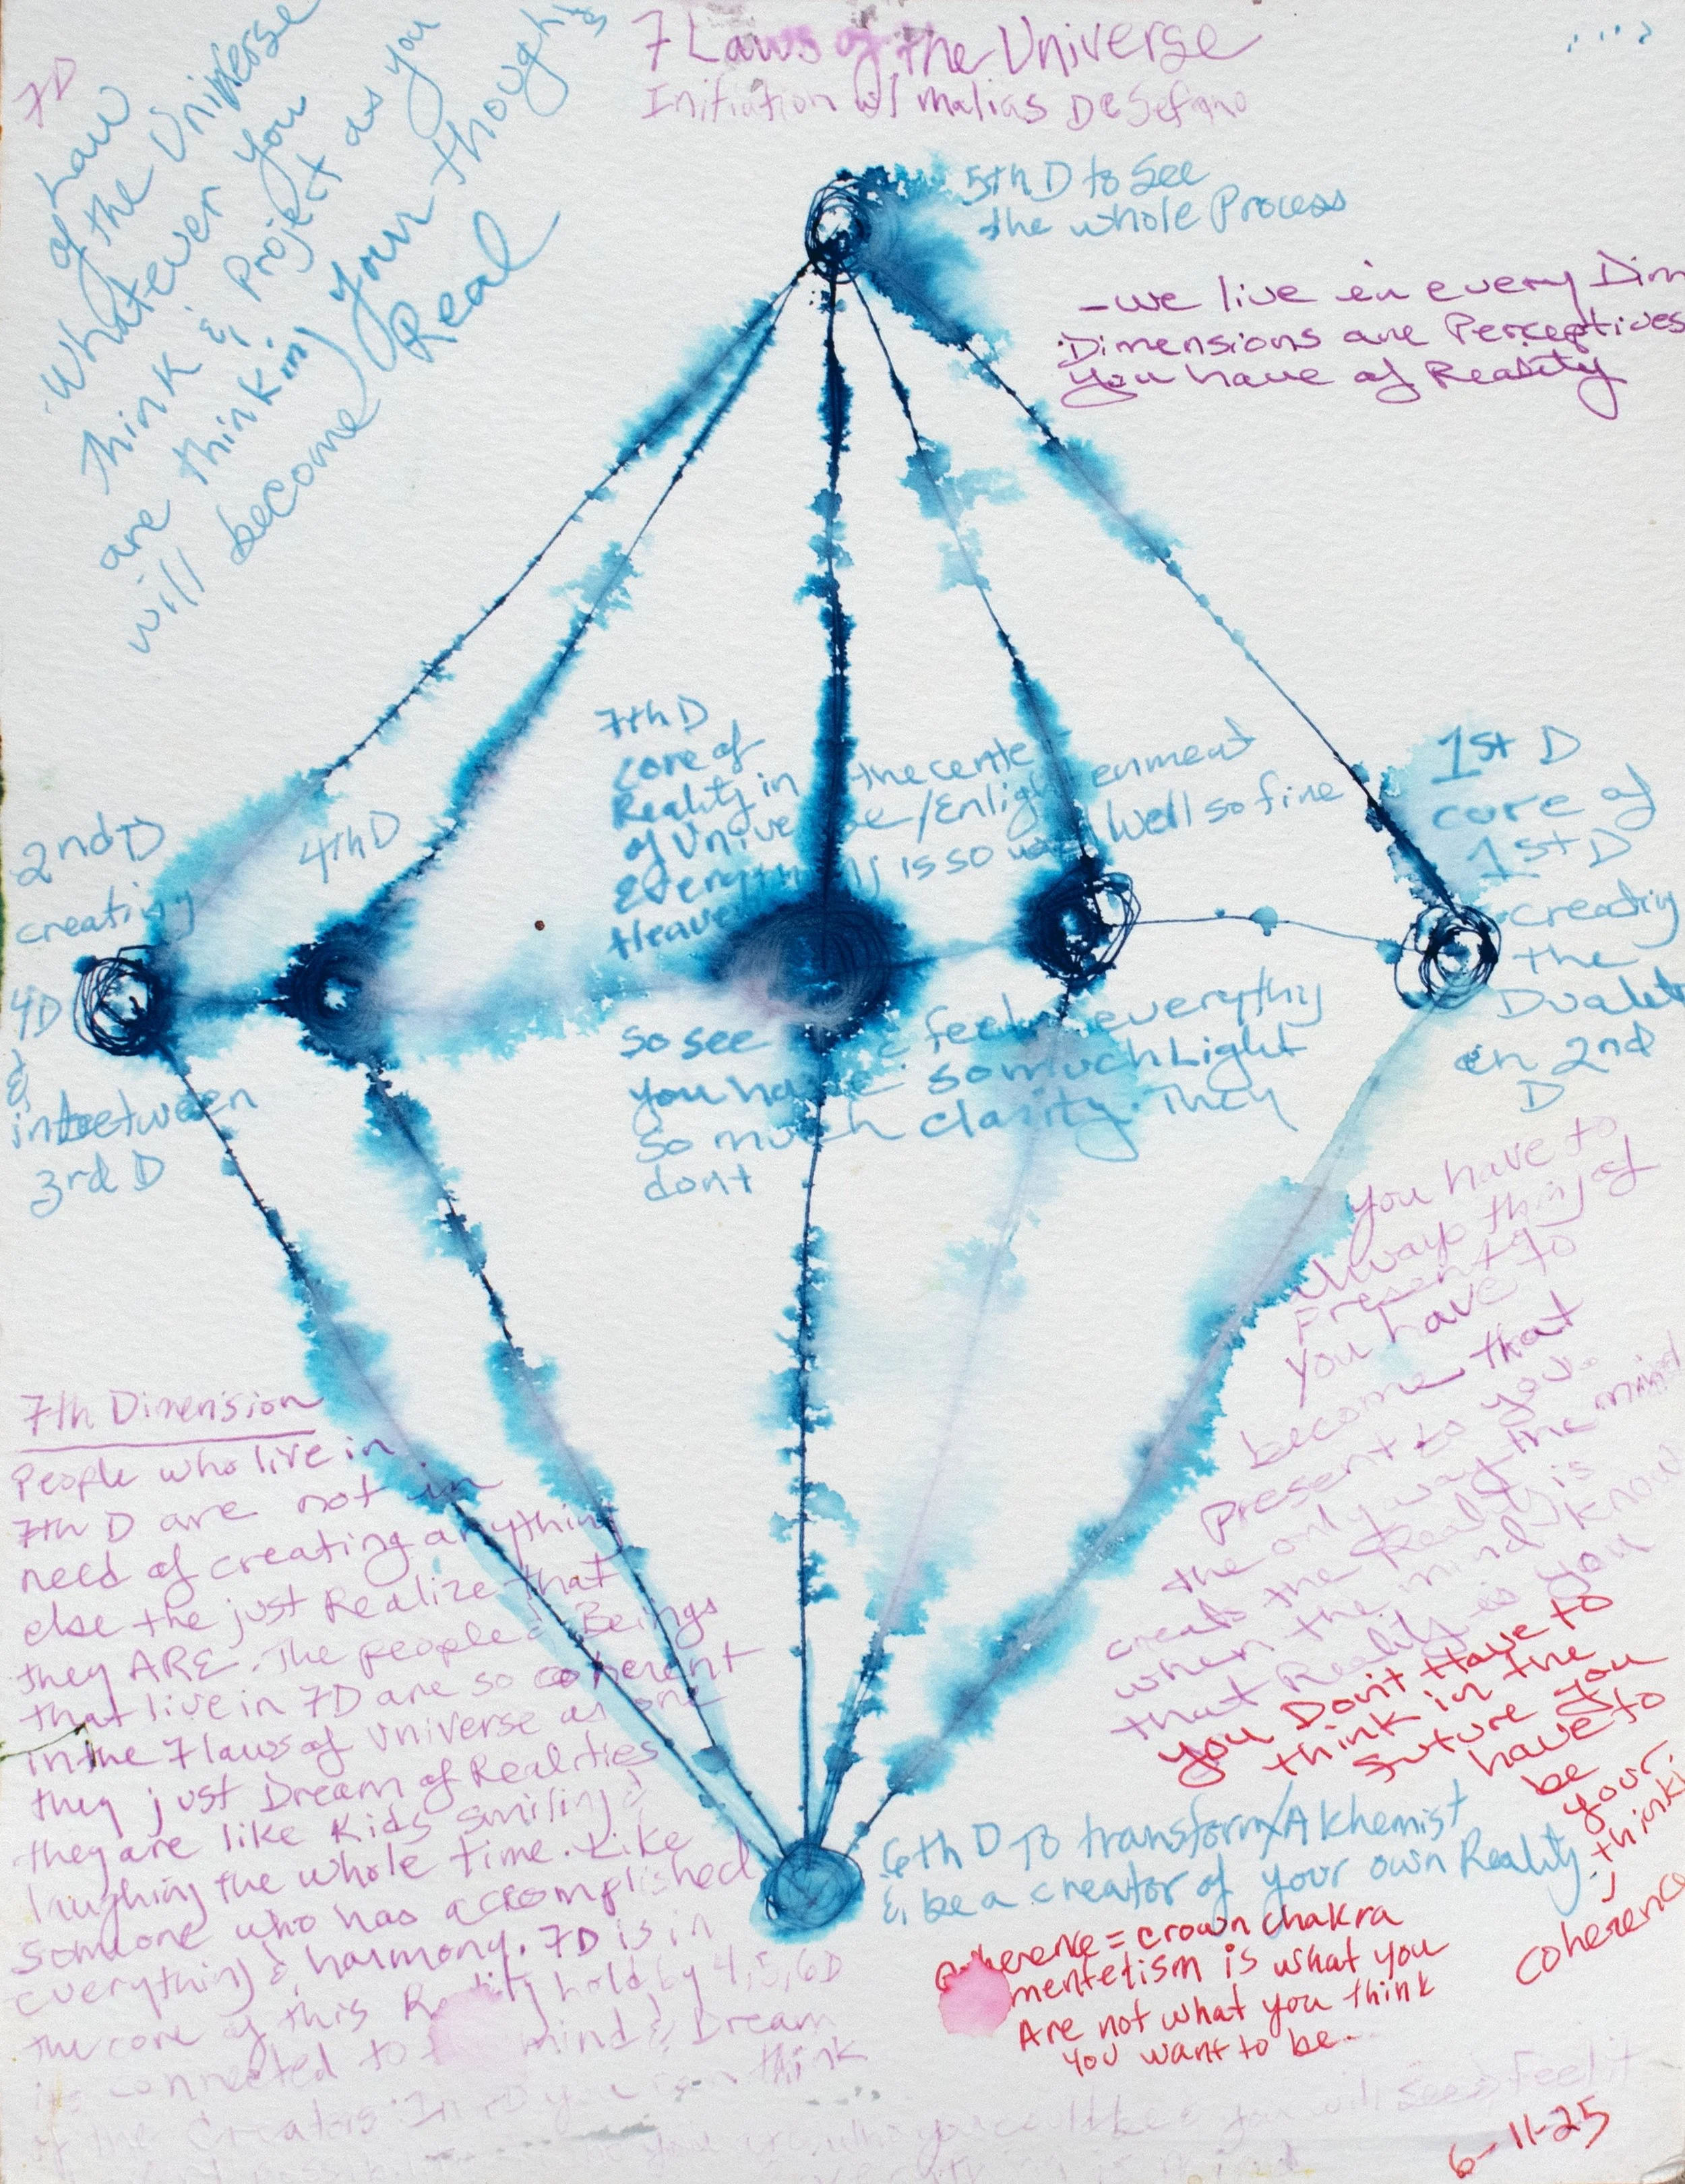 7 Laws of the Universe
Initiation w/ malias DeSefano
7D
of Law
of the Universe
Whatever you
think & Project as you
are thinking your thoughts
will become Real
5th D to See
the whole Process
- we live in every Dim
Dimensions are Perceptives
you have of Reality
7th D
core of
Reality in the cente
of Universe/Enlightenment
Every is so well so fine
Heave
2nd D
creating
4D
&
inbetween
3rd D
4th D
1st D
core of
1st D
creating
the
Dualit
in 2nd
D
so see & feel everythy
you have so much Light
so much clarity. They
dont
you have to
always thing of
present
you have to
become that
present to you.
the only way the mind
creats the Reality is
when the mind know
that Reality is you
you Don't Have to
think in the
future you
have to
be
your
thinki
coherence
7th Dimension
People who live in
7th D are not in
need of creating anything
else the just Realize that
they ARE. The people & Beings
that live in 7D are so coherent
in the 7 laws of Universe as one
they just Dream of Realities
they are like Kids smiling &
laughing the whole time. Like
someone who has accomplished
everything & harmony. 7D is in
the core of this Reality hold by 4,5,6D
its connected to mind & Dream
of the Creators. In 7D you can think
6th D To transform/Alkhemist
& be a creator of your own Reality
coherence = crown chakra
mentetism is what you
Are not what you think
you want to be-
6-11-25